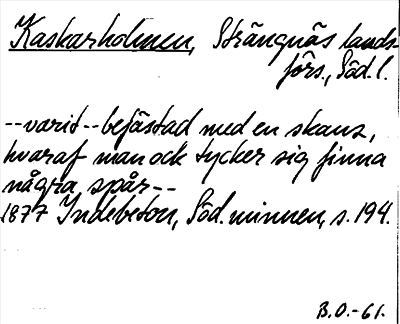 Kaskarholmen, Strängnäs lands-
förs., Söd.l.
--varit--befästad med en skans,
hvaraf man ock tycker sig finna
några spår--
1877 Indebetou, Söd.minnen, s. 194.
B.O.-61.